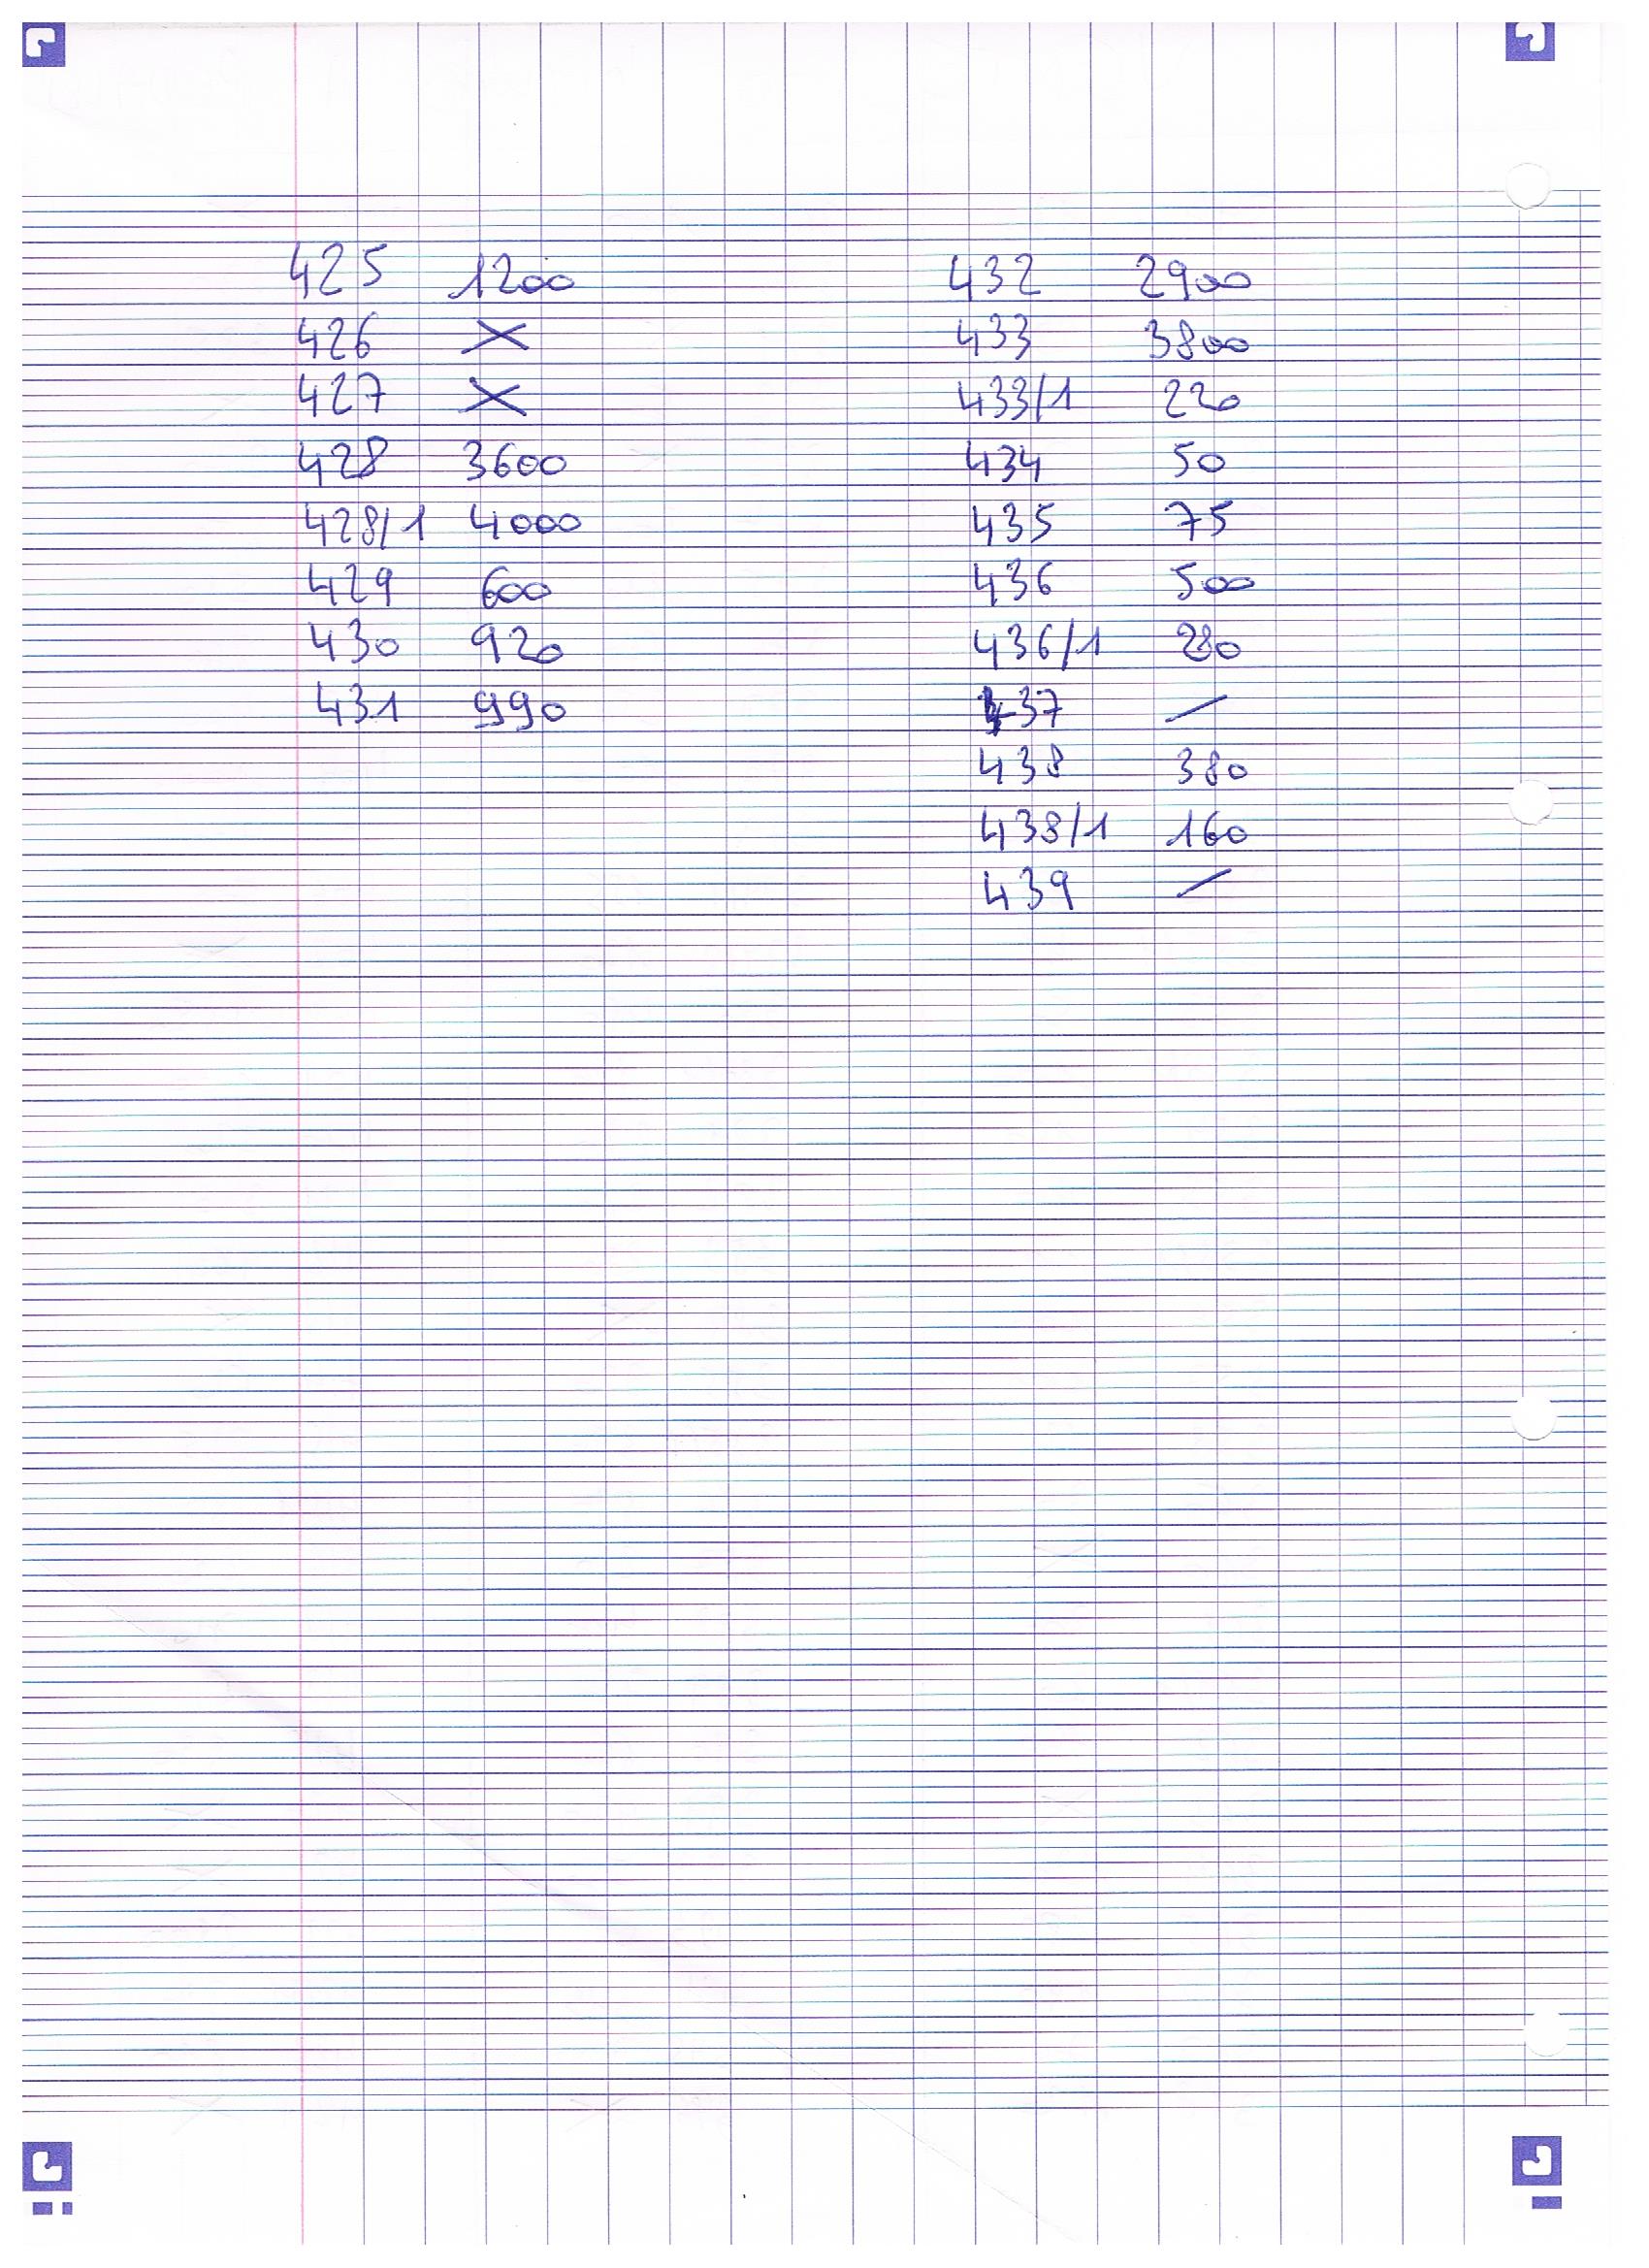 425 1200
426 X
427 X
428 3600
428/1 4000
429 600
430 920
431 990
432 2900
433 3800
433/1 220
434 50
435 75
436 500
436/1 280
437 —
438 380
438/1 160
439 —